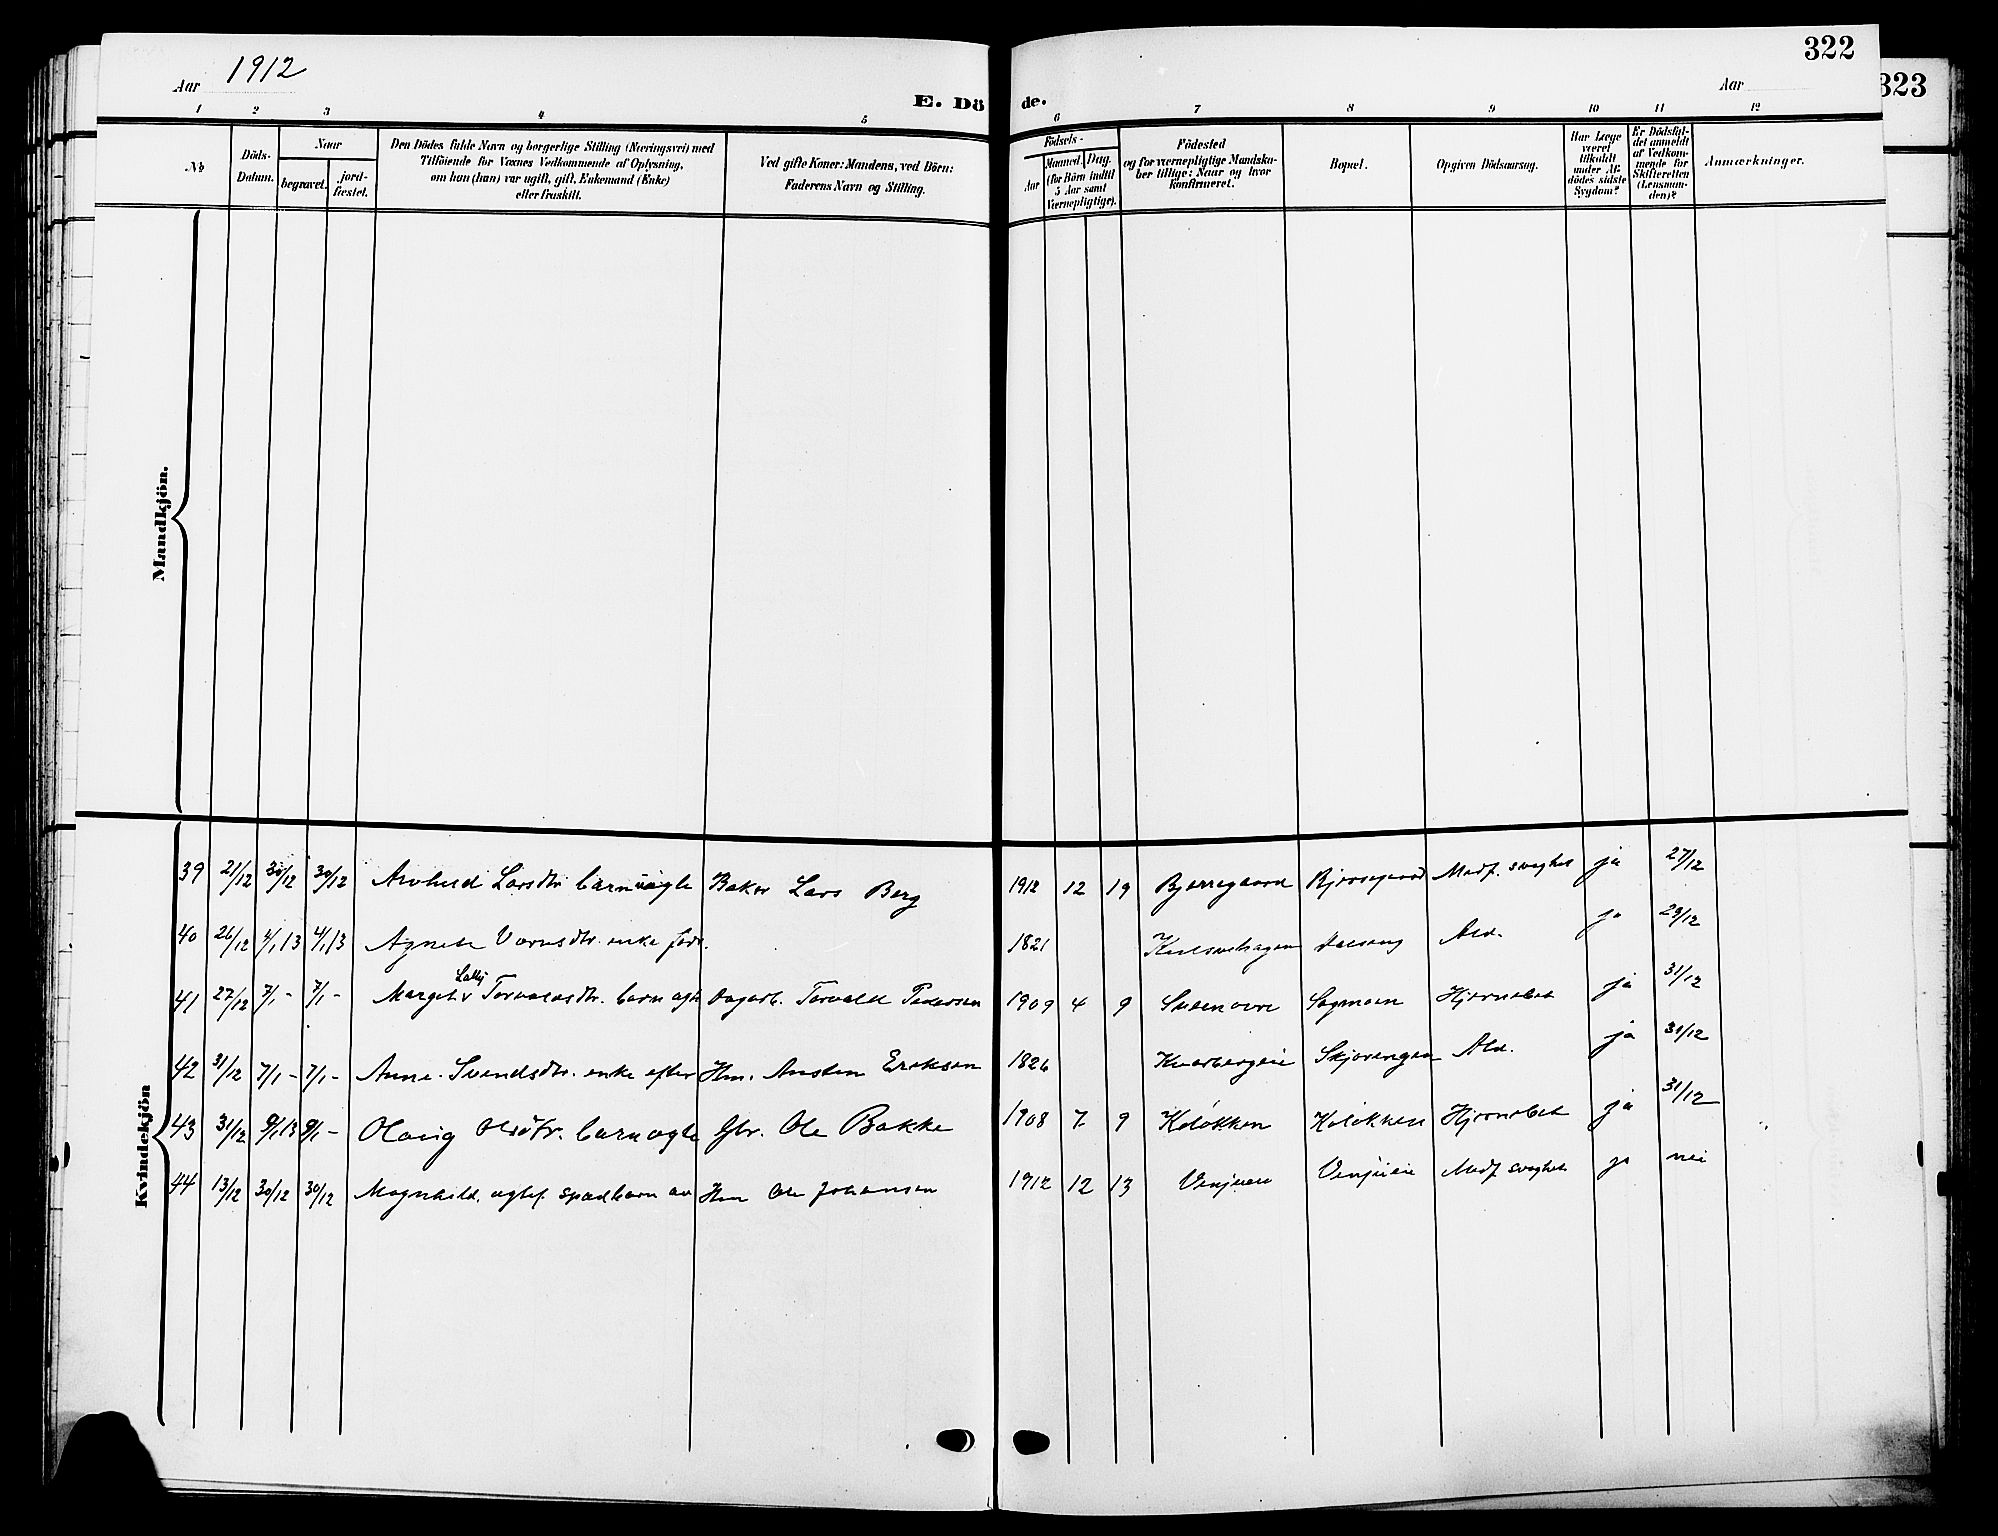 322
323
Aar 1912
Aar
E. Döde.
1 2 3 4 5 6 7 8 9 10 11 12
No
Döds-Datum.
Naar
begravet.
jord-fæstet.
Den Dödes fulde Navn og borgerlige Stilling (Næringsvei) med
Tilföiende for Voxnes Vedkommende af Oplysning,
om hun (han) var ugift, gift, Enkemand (Enke)
eller fraskilt.
Ved gifte Koner: Mandens, ved Börn:
Faderens Navn og Stilling.
Födsels-
Aar
Maaned. Dag.
(for Börn indtil
5 Aar samt
Værnepligtige).
Födested
og for værnepligtige Mandska-
ber tillige: Naar og hvor
konfirmeret.
Bopæl.
Opgiven Dödsaarsag.
Har Læge
været
tilkaldt
under Af-
dödes sidste
Sygdom?
Er Dödsfal-
det anmeldt
af Vedkom-
mende for
Skifteretten
(Lensman-
den)?
Anmærkninger.
Mandkjön.
Kvindekjön
39 21/12 30/12 30/12 Larsdtr. barn Baker Lars Berg 1912 12 19 Bjerregaard Bjerregaard Medf. svaghet ja 27/12
40 26/12 4/1 13 4/1 13 Agnete enke 1821 Ald. ja 29/12
41 27/12 7/1 - 7/1 - Margit Lally Torvaldsdtr. barn Dagarb. Torvald Pedersen 1909 4 9 Sagmoen Hjernebet ja 31/12
42 31/12 7/1 - 7/1 - Anne Svendsdtr. enke efter Hm. Austen Eriksen 1826 Kvarbergeie Skjørengen Ald. ja 31/12
43 31/12 9/1 13 9/1 - Olaug Olsdtr. barn Gbr. Ole Bakke 1908 7 9 Koløkken Koløkken Hjernebet ja 31/12
44 13/12 30/12 30/12 Magnhild, spædbarn av Hm Ole Johansen 1912 12 13 Medf svaghet ja nei